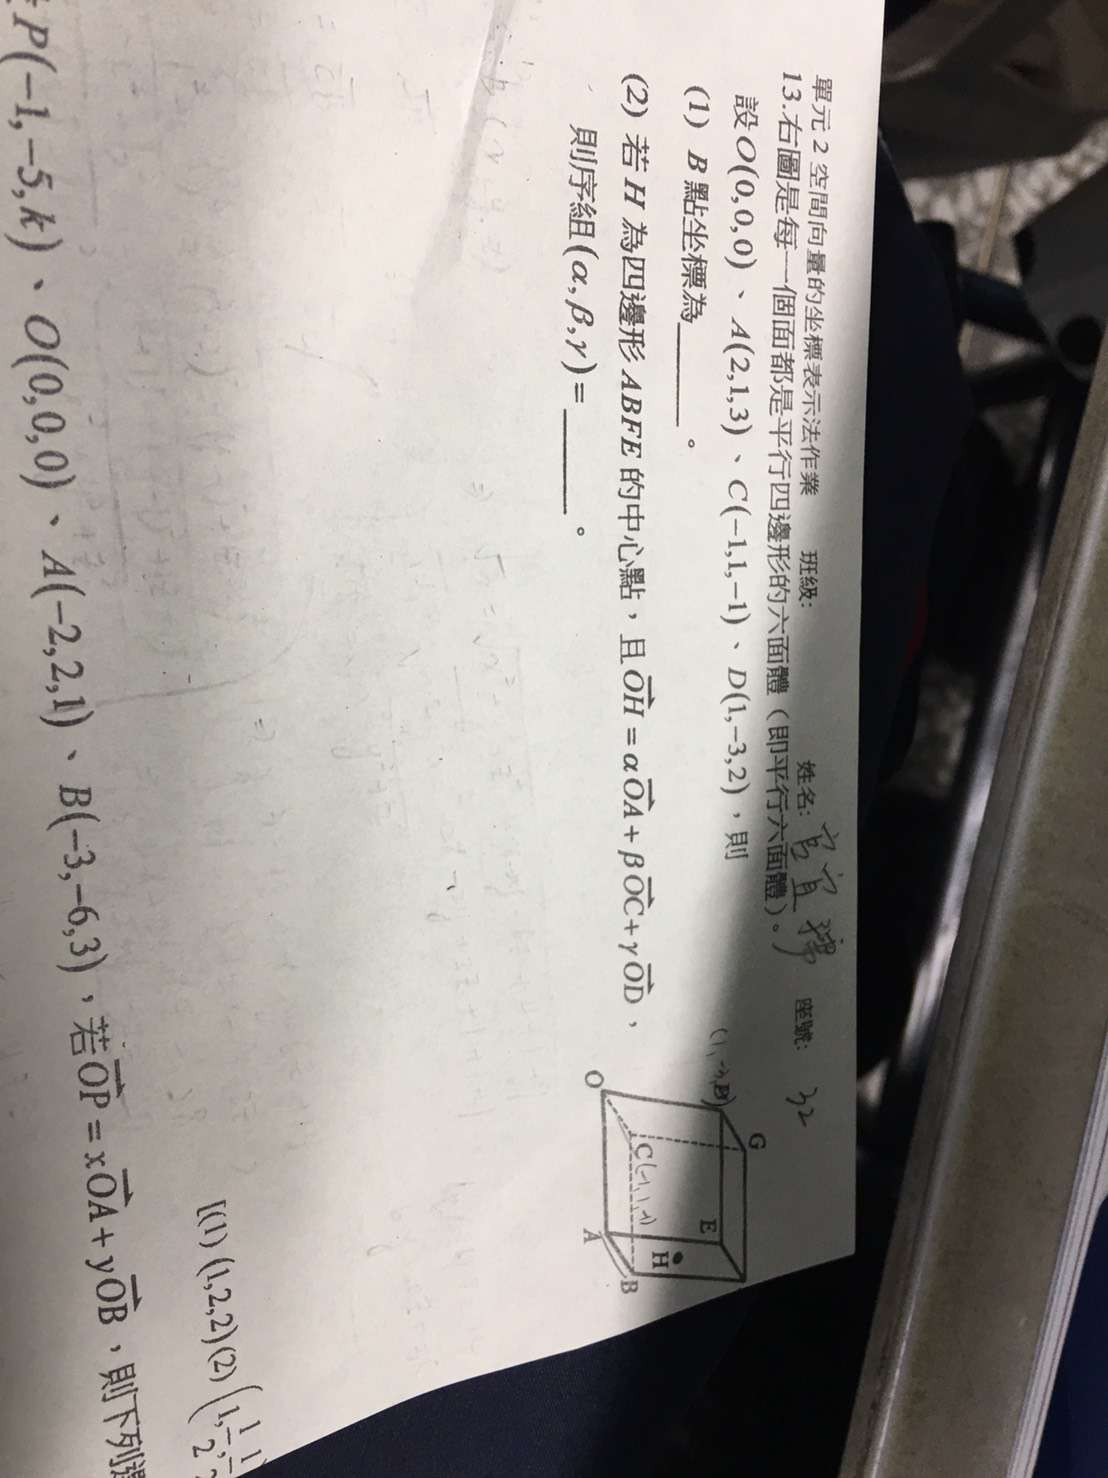 單元 2 空間向量的坐標表示法作業 班級: 姓名: 座號: 32
13.右圖是每一個面都是平行四邊形的六面體（即平行六面體）。
設 O(0,0,0)、A(2,1,3)、C(−1,1,−1)、D(1,−3,2)，則
(1) B 點坐標為______。
(2) 若 H 為四邊形 ABFE 的中心點，且 OH = αOA + βOC + γOD，
則序組(α,β,γ)=______。
G
E
H
C(-1,1,-1)
O
A
B
[(1) (1,2,2)(2) (1,1/2,
P(−1,−5,k)、O(0,0,0)、A(−2,2,1)、B(−3,−6,3)，若 OP = xOA + yOB，則下列